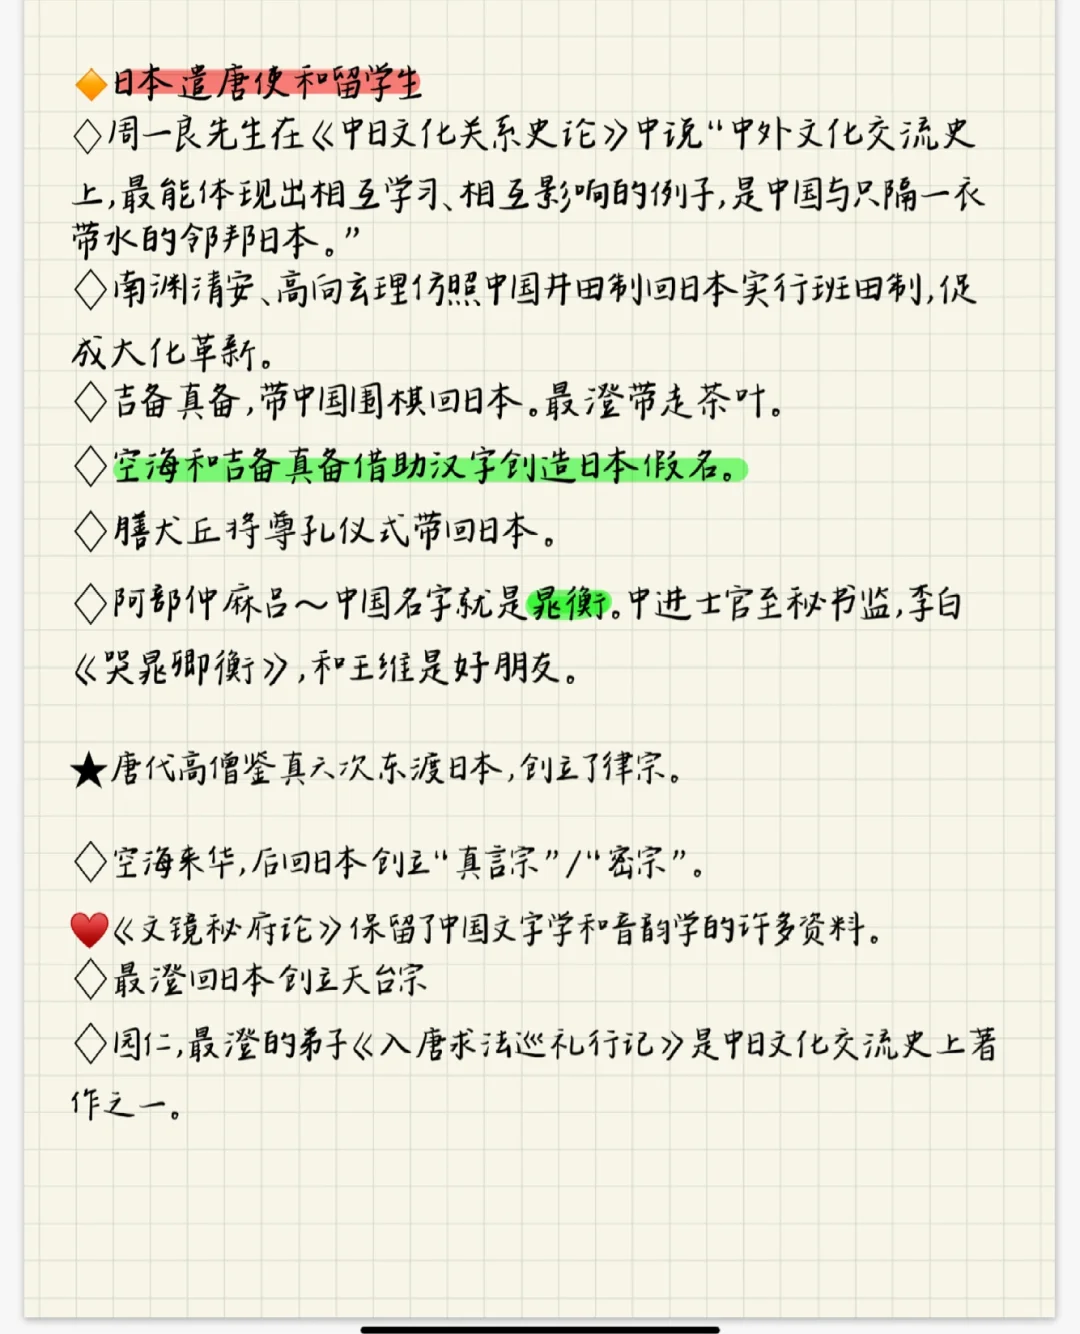 🔶日本遣唐使和留学生
◇周一良先生在《中日文化关系史论》中说“中外文化交流史
上,最能体现出相互学习、相互影响的例子,是中国与只隔一衣
带水的邻邦日本。”
◇南渊清安、高向玄理仿照中国井田制回日本实行班田制,促
成大化革新。
◇吉备真备,带中国围棋回日本。最澄带走茶叶。
◇空海和吉备真备借助汉字创造日本假名。
◇膳犬丘将尊孔仪式带回日本。
◇阿部仲麻吕～中国名字就是晁衡。中进士官至秘书监,李白
《哭晁卿衡》,和王维是好朋友。
★唐代高僧鉴真六次东渡日本,创立了律宗。
◇空海来华,后回日本创立“真言宗”/“密宗”。
♥《文镜秘府论》保留了中国文字学和音韵学的许多资料。
◇最澄回日本创立天台宗
◇园仁,最澄的弟子《入唐求法巡礼行记》是中日文化交流史上著
作之一。